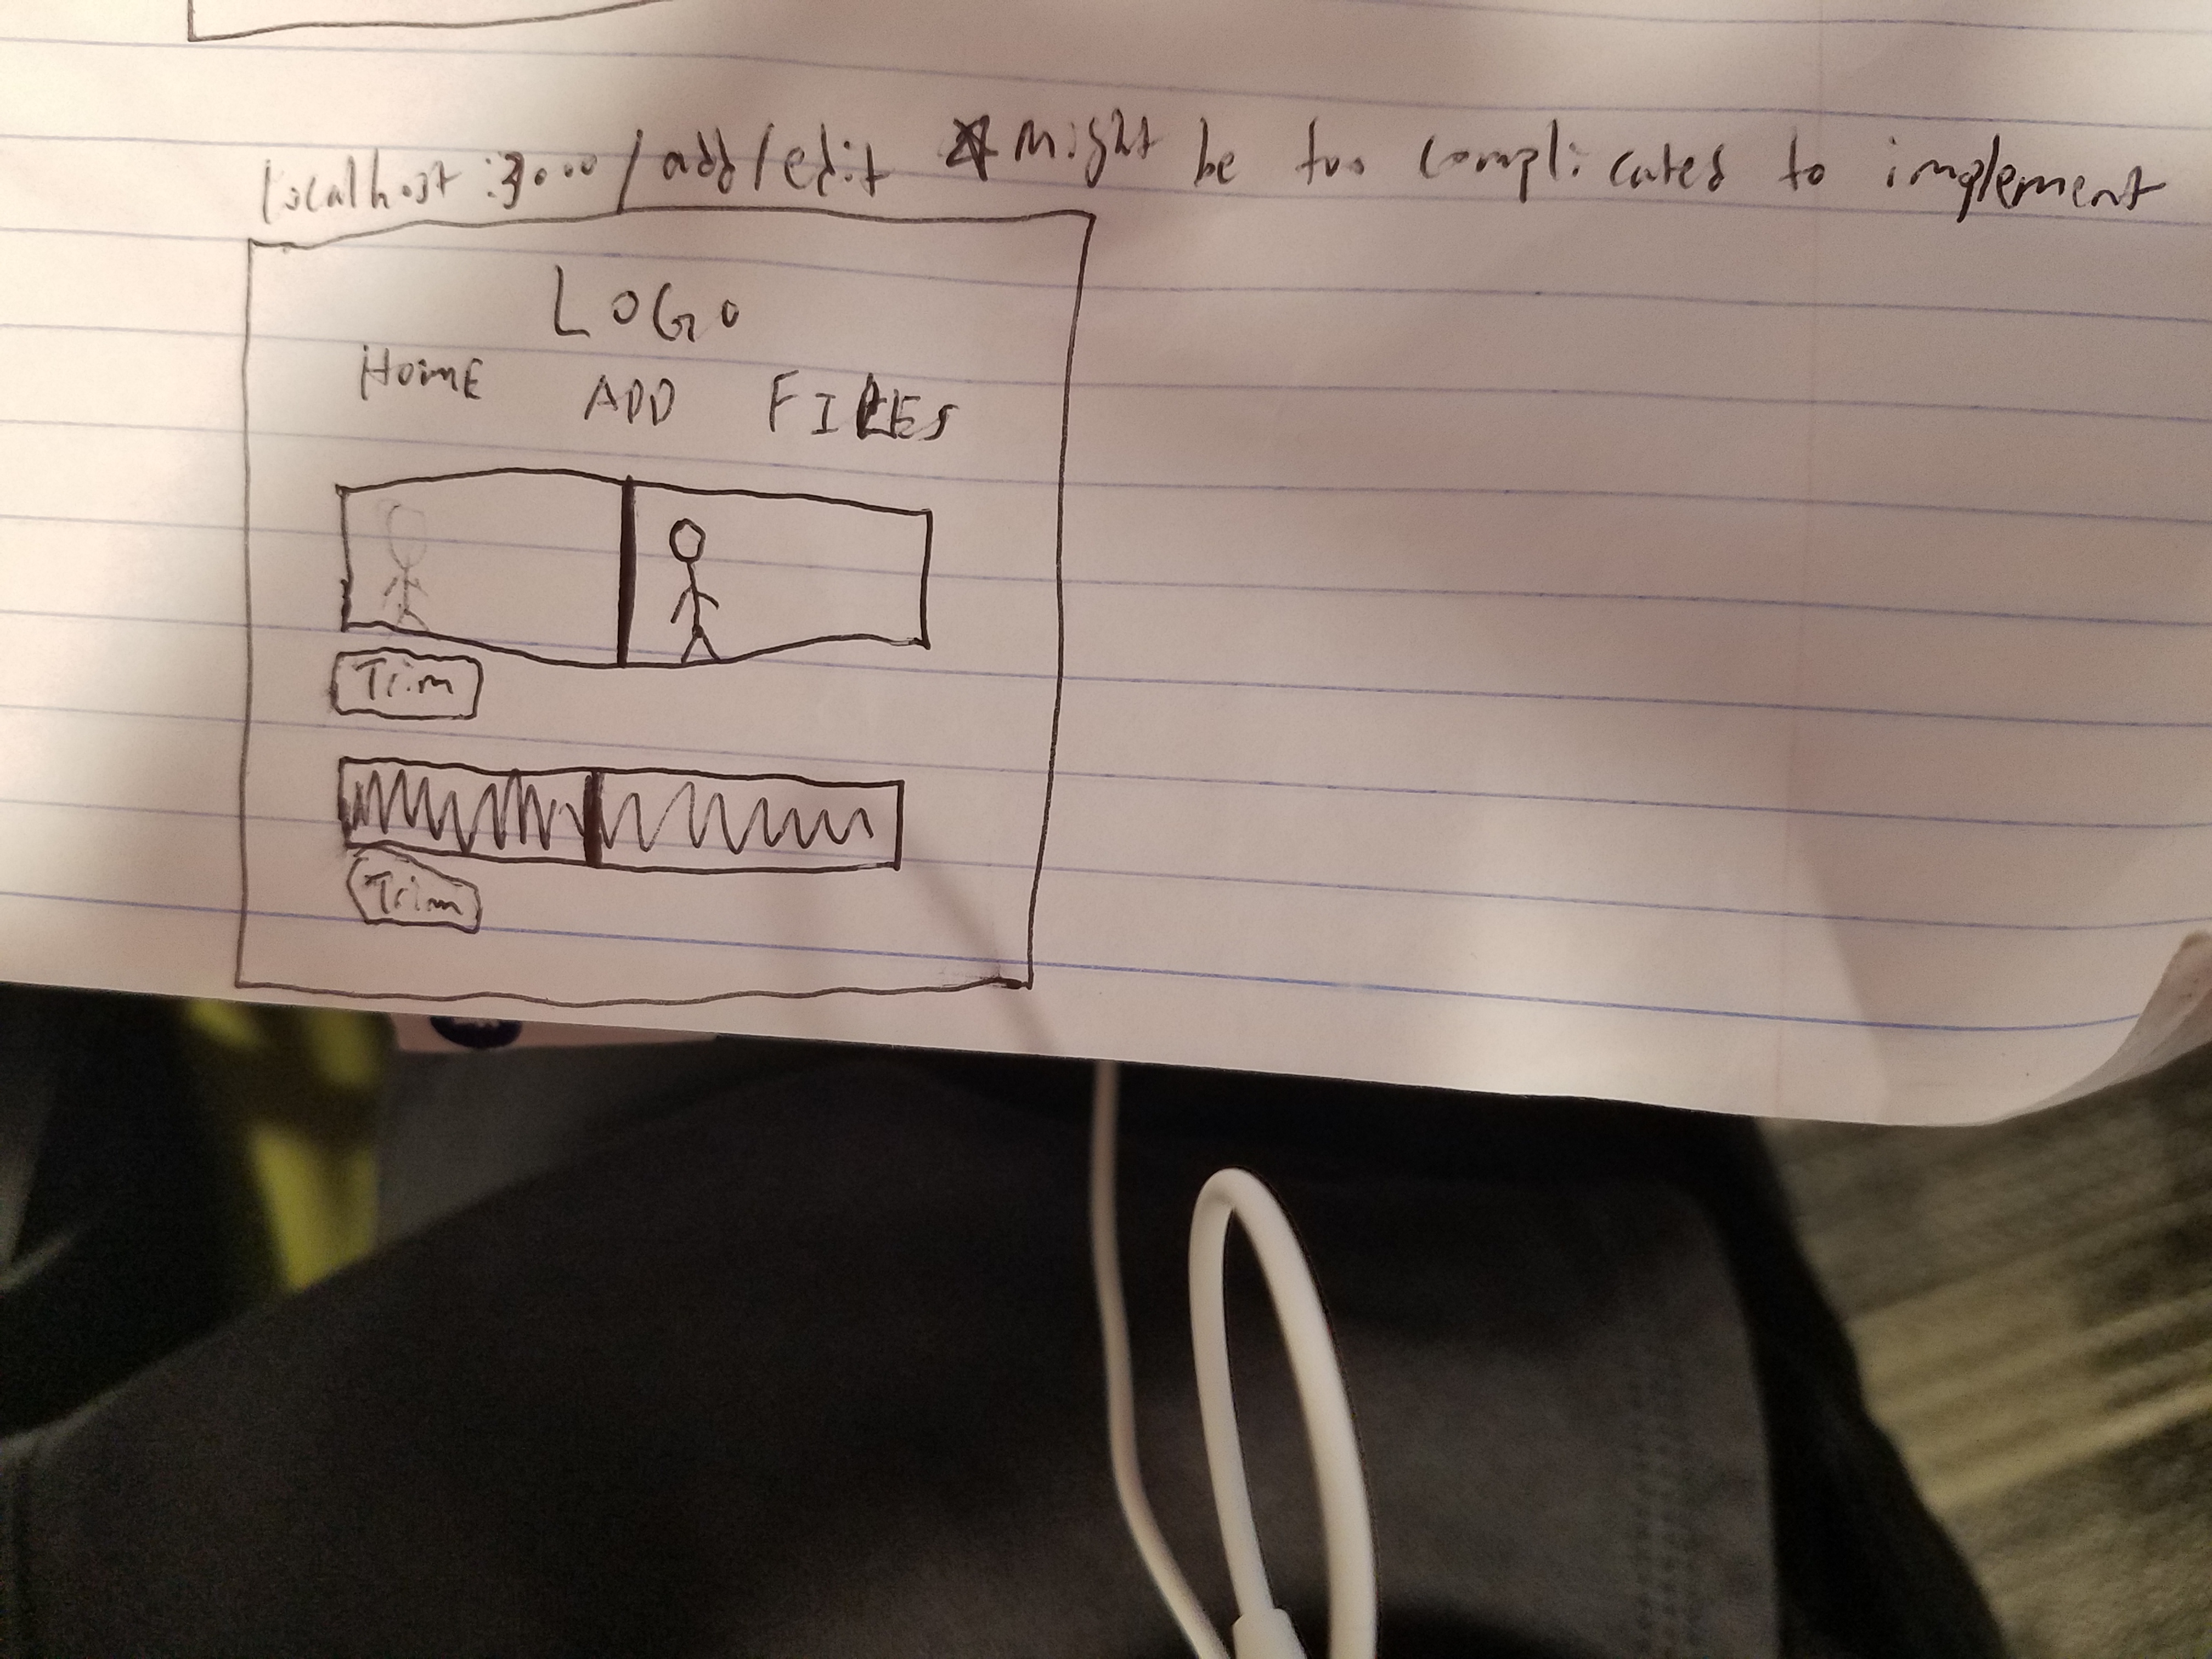 localhost:3000/add/edit ☆ might be too complicated to implement
LOGO
HOME ADD FILES
Trim
Trim